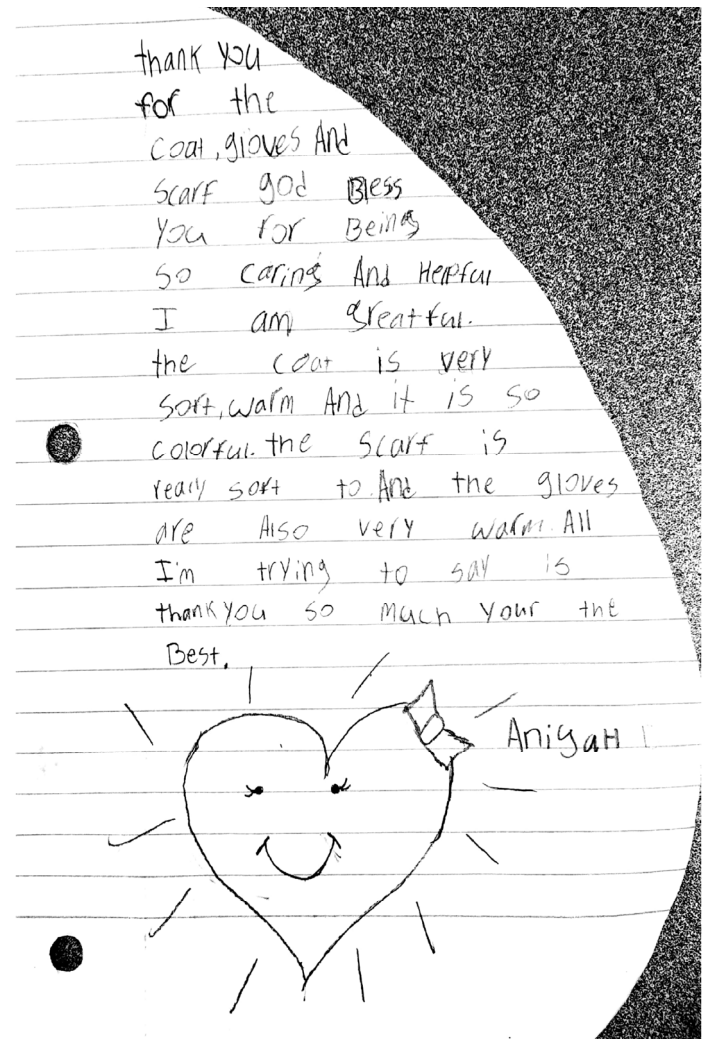 thank you
for the
coat, gloves And
Scarf god Bless
You for Being
So caring And Helpful
I am greatful.
the coat is very
sort, warm And it is so
colorful. the scarf is
really sort to. And the gloves
are Also very warm. All
I'm trying to say is
thank you so much your the
Best.
AniyaH